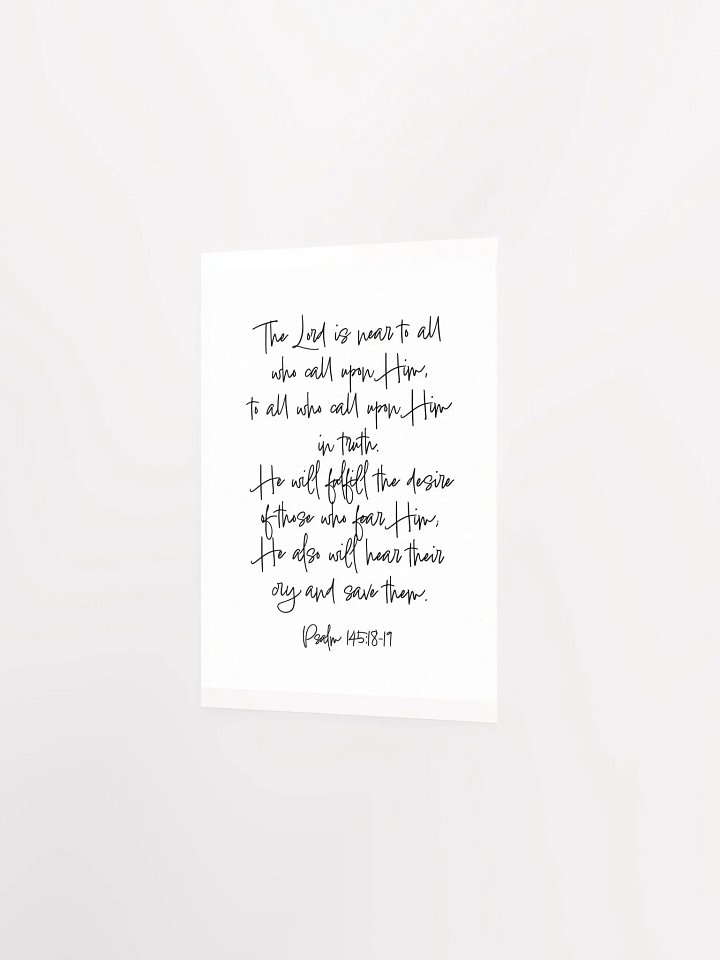 The Lord is near to all
who call upon Him,
to all who call upon Him
in truth.
He will fulfill the desire
of those who fear Him;
He also will hear their
cry and save them.
Psalm 145:18-19